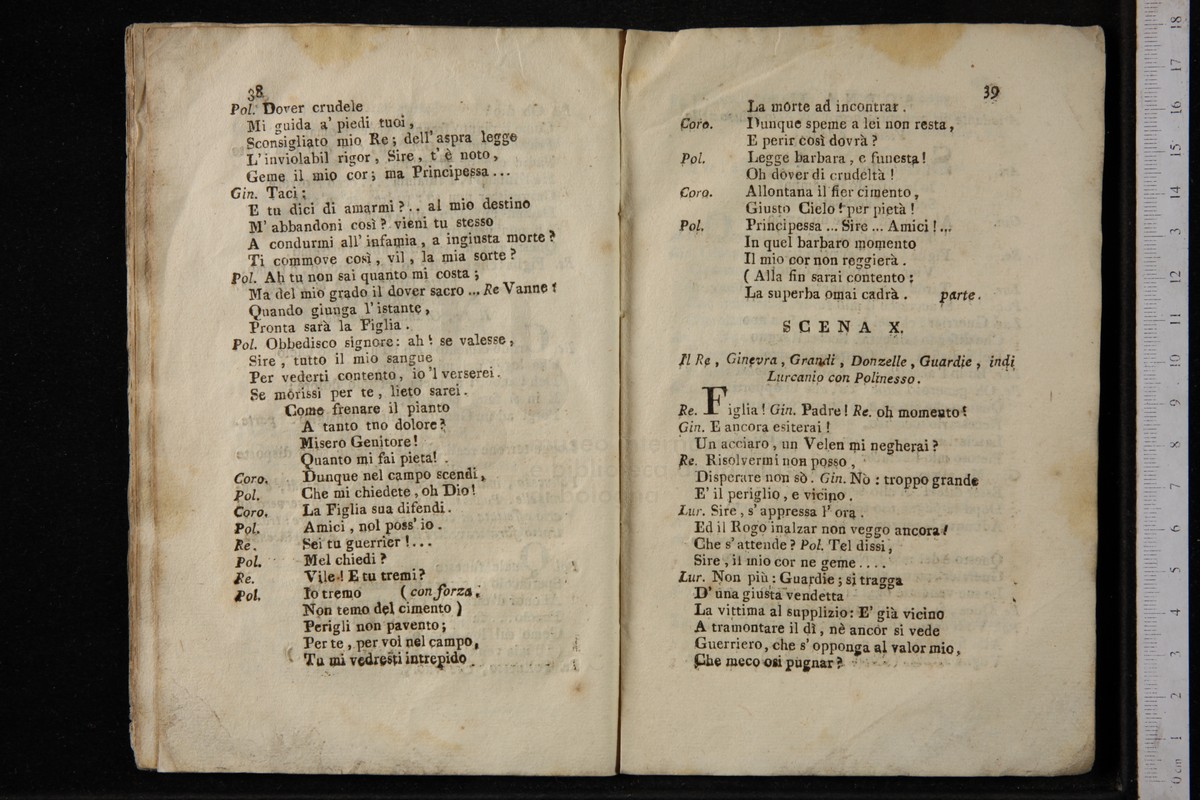 38
Pol. Dover crudele
Mi guida a' piedi tuoi,
Sconsigliato mio Re; dell' aspra legge
L' inviolabil rigor, Sire, t' è noto,
Geme il mio cor; ma Principessa...
Gin. Taci:
E tu dici di amarmi?.. al mio destino
M' abbandoni così? vieni tu stesso
A condurmi all' infamia, a ingiusta morte?
Ti commove così, vil, la mia sorte?
Pol. Ah tu non sai quanto mi costa;
Ma del mio grado il dover sacro... Re Vanne!
Quando giunga l' istante,
Pronta sarà la Figlia.
Pol. Obbedisco signore: ah! se valesse,
Sire, tutto il mio sangue
Per vederti contento, io 'l verserei.
Se morissi per te, lieto sarei.
Come frenare il pianto
A tanto tno dolore?
Misero Genitore!
Quanto mi fai pieta!
Coro. Dunque nel campo scendi,
Pol. Che mi chiedete, oh Dio!
Coro. La Figlia sua difendi.
Pol. Amici, nol poss' io.
Re. Sei tu guerrier!...
Pol. Mel chiedi?
Re. Vile! E tu tremi?
Pol. Io tremo (con forza.
Non temo del cimento)
Perigli non pavento;
Per te, per voi nel campo,
Tu mi vedresti intrepido
39
La morte ad incontrar.
Coro. Dunque speme a lei non resta,
E perir così dovrà?
Pol. Legge barbara, e funesta!
Oh dover di crudeltà!
Coro. Allontana il fier cimento,
Giusto Cielo! per pietà!
Pol. Principessa... Sire... Amici!...
In quel barbaro momento
Il mio cor non reggierà.
(Alla fin sarai contento:
La superba omai cadrà. parte.
SCENA X.
Il Re, Ginevra, Grandi, Donzelle, Guardie, indi
Lurcanio con Polinesso.
Re. Figlia! Gin. Padre! Re. oh momento!
Gin. E ancora esiterai!
Un acciaro, un Velen mi negherai?
Re. Risolvermi non posso,
Disperare non sò. Gin. Nò: troppo grande
E' il periglio, e vicino.
Lur. Sire, s' appressa l' ora.
Ed il Rogo inalzar non veggo ancora!
Che s' attende? Pol. Tel dissi,
Sire, il mio cor ne geme....
Lur. Non più: Guardie; si tragga
D' una giusta vendetta
La vittima al supplizio: E' già vicino
A tramontare il dì, nè ancor si vede
Guerriero, che s' opponga al valor mio,
Che meco osi pugnar?